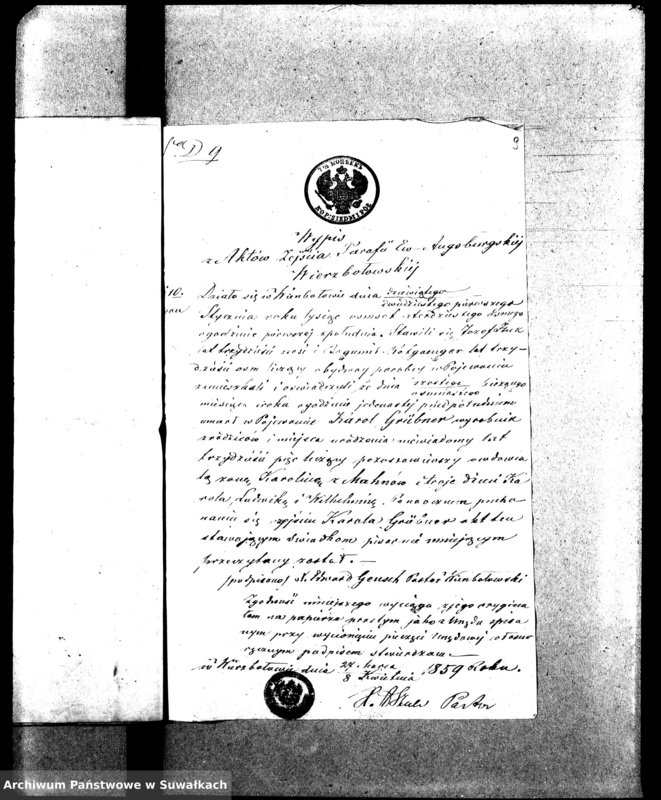 D 9
9
7½ КОПѢЕКЪ
Wypis
z Aktów Zejścia Parafii Ew-Augsburgskiéj
Wierzbołowskiéj
10.
Działo się w Wierzbołowie dnia dziewiątego
dwudziestego pierwszego
Stycznia roku tysiąc osmset czterdziestego ósmego
godzinie pierwszej z południa. Stawili się Jozef
lat trzydzieści sześć i Bogumił lat trzy-
dzieści osm liczący obydwaj parobcy w Pojewoniu
zamieszkali i oświadczyli że dnia szóstego bieżącego
osmnastego
miesiąca i roku o godzinie jedenastej przed południem
umarł w Pojewoniu Karol Grübner wyrobnik
z rodziców i miejsca urodzenia niewiadomy lat
trzydzieści pięć liczący pozostawiwszy owdowia
łą żonę Karolinę z Malinów i troje dzieci Ka
rola, Ludwikę i Wilhelminę. Po naocznem przeko
naniu się o zejściu Karola Grübner akt ten
stawającym świadkom pisać nie umiejącym
przeczytany został. —
/podpisano/ Edward Gensch Pastor Wierzbołowski
Zgodność niniejszego wyciągu z jego orygina
łem na papierze prostym jako z Urzędu spisa
nym przy wyciśnięciu pieczęci Urzędowej własno
ręcznym podpisem stwierdzam —
w Wierzbołowie dnia 27 Marca 1859 Roku.
8 Kwietnia
Pastor
Archiwum Państwowe w Suwałkach